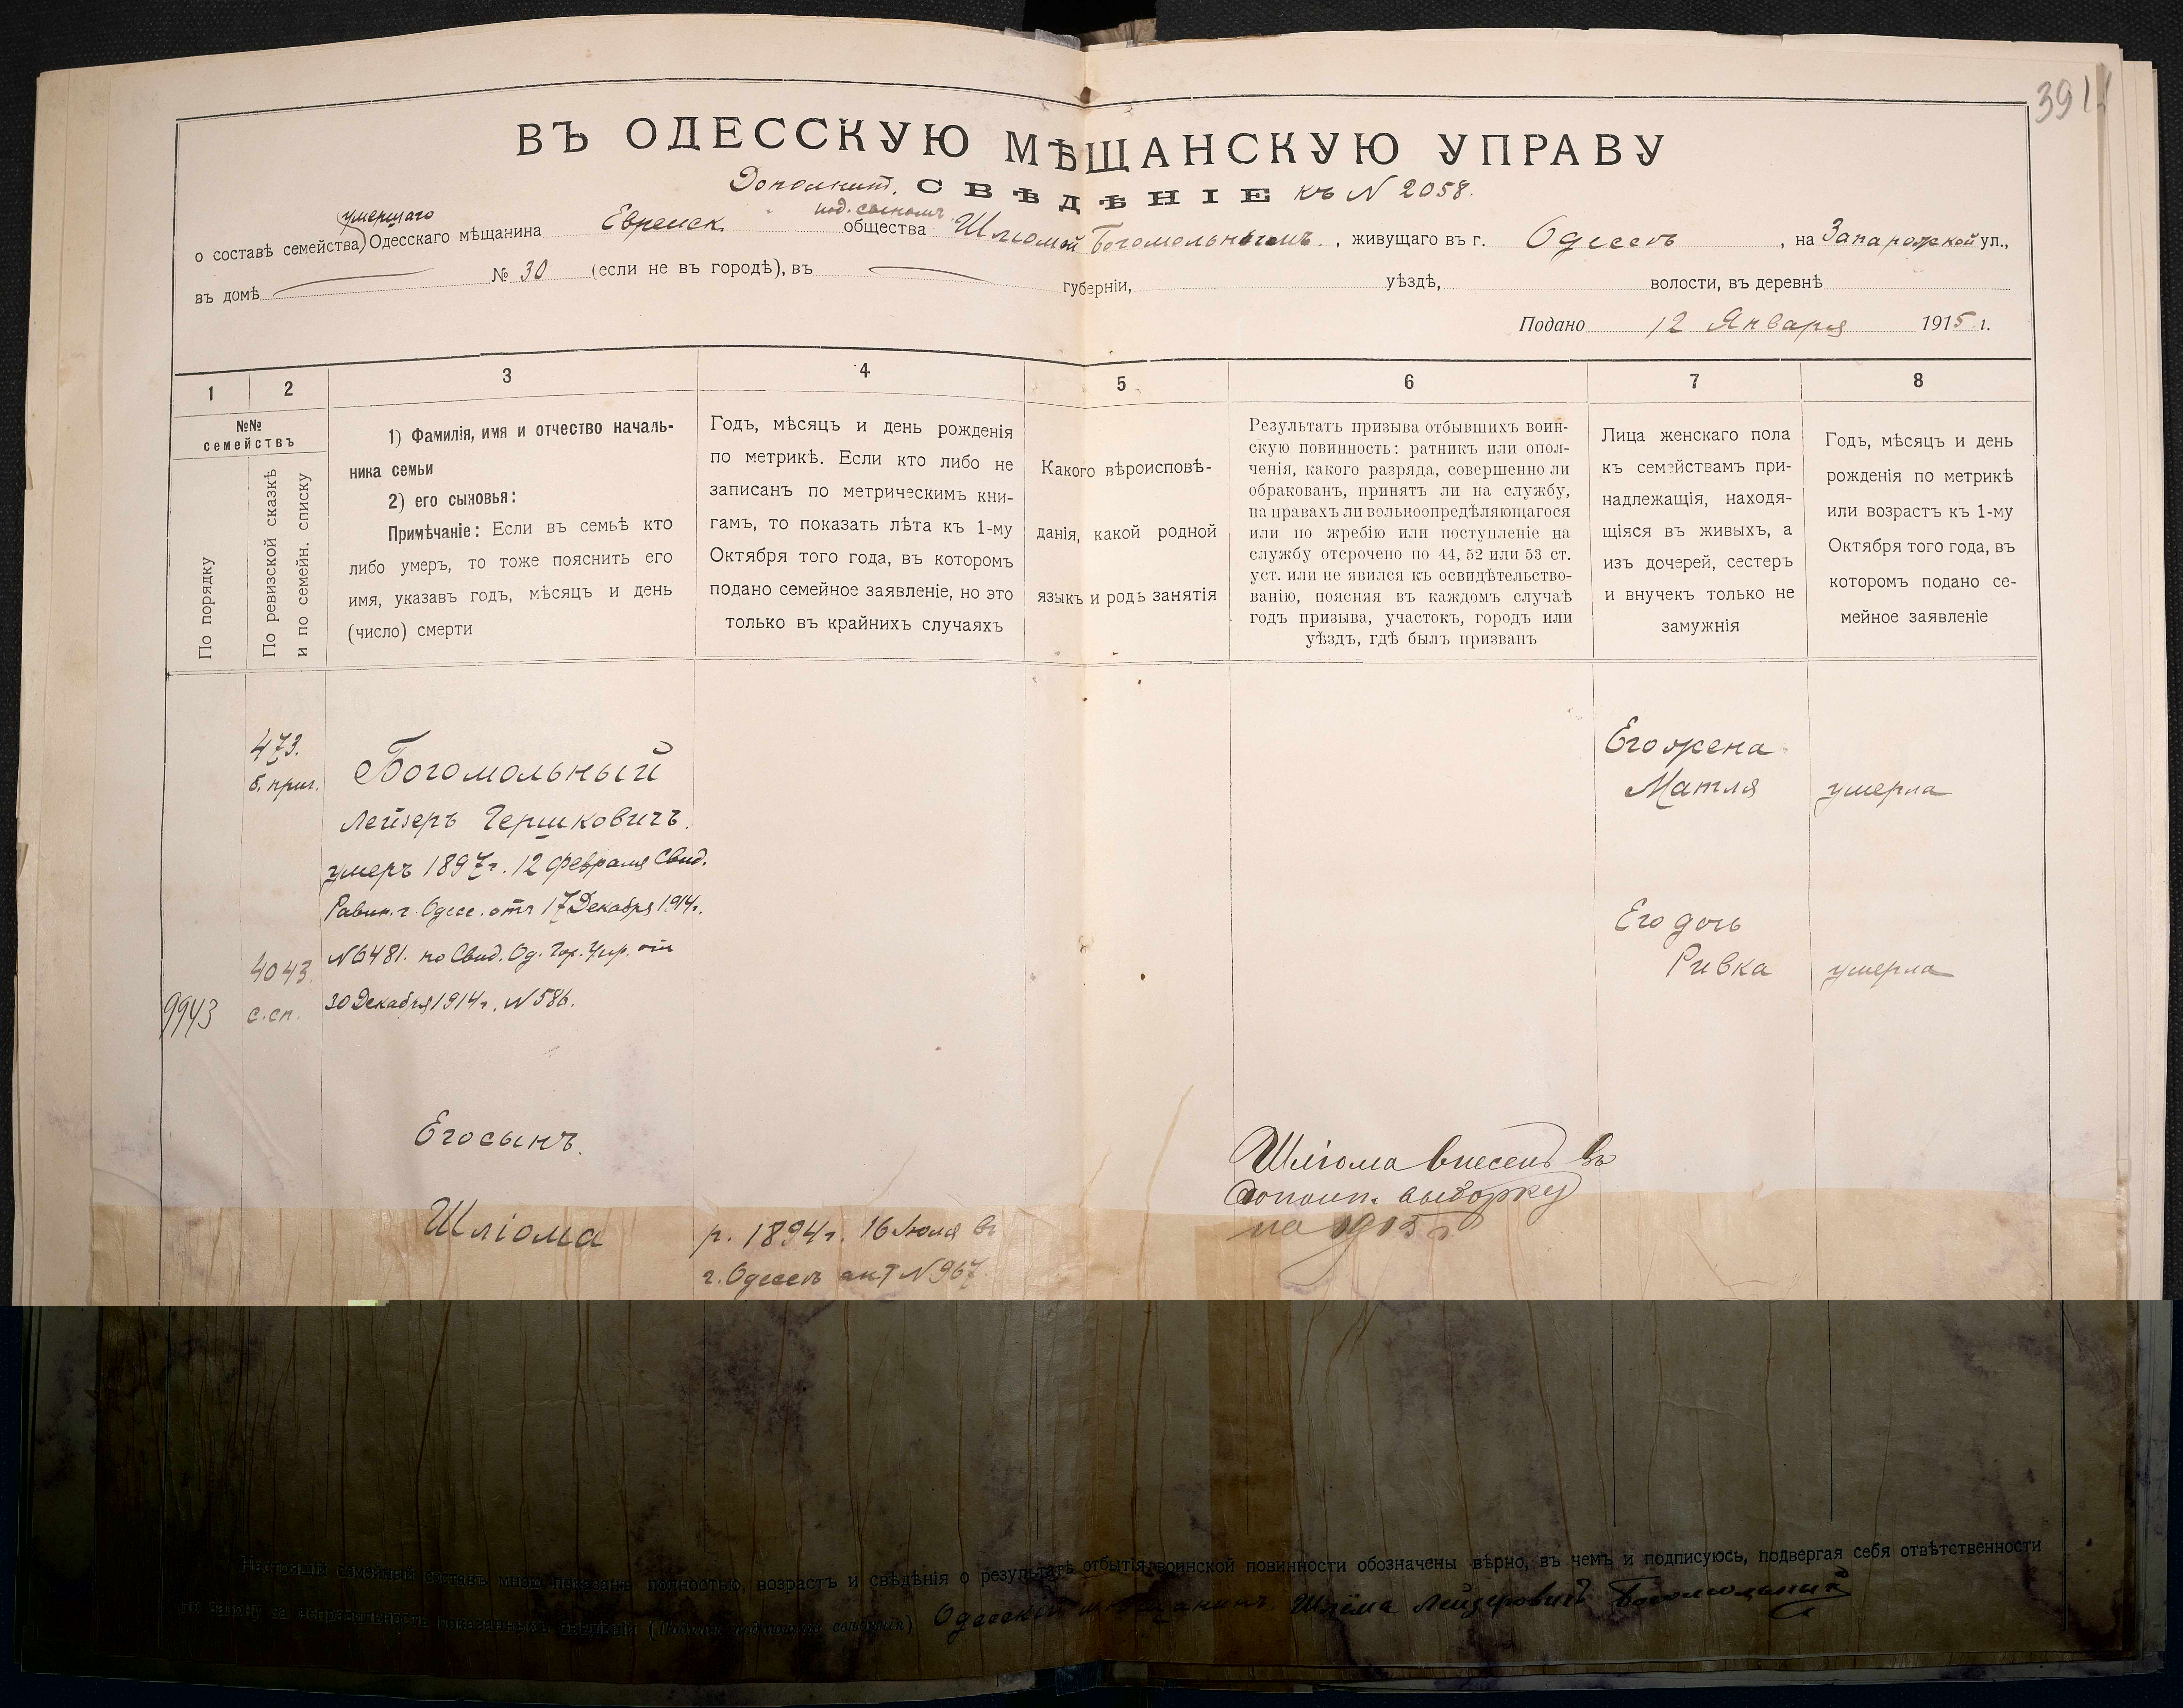 391
ВЪ ОДЕССКУЮ МѢЩАНСКУЮ УПРАВУ
Дополнит. СВѢДѢНІЕ къ N 2058.
умершаго
под. сыномъ
о составѣ семейства Одесскаго мѣщанина Еврейск. общества Шліомой Богомольнымъ, живущаго въ г. Одессѣ, на Запарожской ул.,
въ домѣ № 30 (если не въ городѣ), въ губерніи, уѣздѣ, волости, въ деревнѣ
Подано 12 Января 1915 г.
1 2 3 4 5 6 7 8
№№
семействъ
По порядку
По ревизской сказкѣ
и по семейн. списку
1) Фамилія, имя и отчество началь-
ника семьи
2) его сыновья:
Примѣчаніе: Если въ семьѣ кто
либо умеръ, то тоже пояснить его
имя, указавъ годъ, мѣсяцъ и день
(число) смерти
Годъ, мѣсяцъ и день рожденія
по метрикѣ. Если кто либо не
записанъ по метрическимъ кни-
гамъ, то показать лѣта къ 1-му
Октября того года, въ которомъ
подано семейное заявленіе, но это
только въ крайнихъ случаяхъ
Какого вѣроисповѣ-
данія, какой родной
языкъ и родъ занятія
Результатъ призыва отбывшихъ воин-
скую повинность: ратникъ или опол-
ченія, какого разряда, совершенно ли
обракованъ, принятъ ли на службу,
на правахъ ли вольноопредѣляющагося
или по жребію или поступленіе на
службу отсрочено по 44, 52 или 53 ст.
уст. или не явился къ освидѣтельство-
ванію, поясняя въ каждомъ случаѣ
годъ призыва, участокъ, городъ или
уѣздъ, гдѣ былъ призванъ
Лица женскаго пола
къ семействамъ при-
надлежащія, находя-
щіяся въ живыхъ, а
изъ дочерей, сестеръ
и внучекъ только не
замужнія
Годъ, мѣсяцъ и день
рожденія по метрикѣ
или возрастъ къ 1-му
Октября того года, въ
которомъ подано се-
мейное заявленіе
473.
б. приг.
Богомольный
Лейзеръ Гершковичъ.
умеръ 1897 г. 12 февраля Свид.
Равин. г. Одес. отъ 17 Декабря 1914 г.
N 6481. по Свид. Од. Гор. Упр. от
30 Декабря 1914 г. N 586.
4043
с. сп.
9943
Его жена
Матля умерла
Его дочь
Ривка умерла
Его сынъ.
Шліома
р. 1894 г. 16 Июля въ
г. Одессѣ акт N 967
Шліома внесенъ въ
дополн. выборку
на 1915 г.
Настоящій семейный составъ мною показанъ полностью, возрастъ и свѣдѣнія о результатѣ отбытія воинской повинности обозначены вѣрно, въ чемъ и подписуюсь, подвергая себя отвѣтственности
по закону за неправильность показанныхъ свѣдѣній (Подпись подавшаго свѣдѣнія) Одесскій мѣщанинъ Шлёма Лейзеровичъ Богомольный